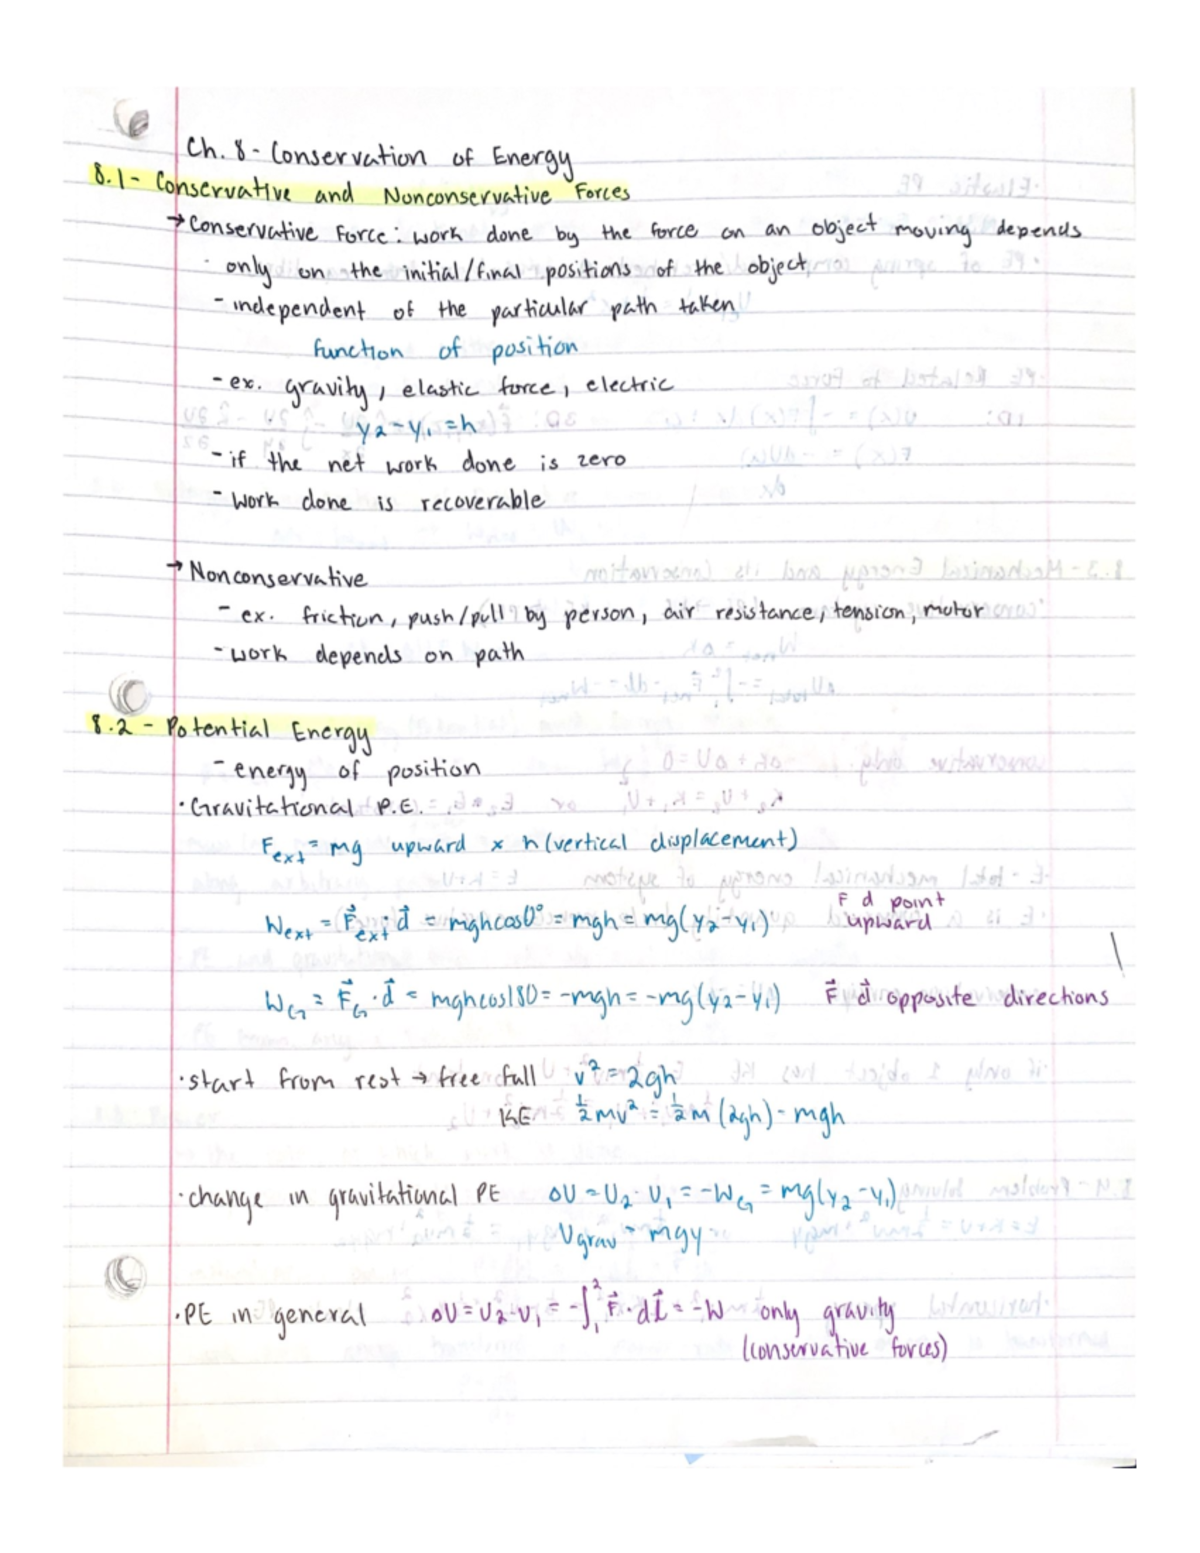 Ch. 8 - Conservation of Energy
8.1 - Conservative and Nonconservative Forces
→ Conservative Force: work done by the force on an object moving depends
only on the initial/final positions of the object
- independent of the particular path taken
function of position
- ex. gravity, elastic force, electric
y₂-y₁ = h
- if the net work done is zero
- work done is recoverable
→ Nonconservative
- ex. friction, push/pull by person, air resistance, tension, motor
- work depends on path
8.2 - Potential Energy
- energy of position
· Gravitational P.E.
F_ext = mg upward x h (vertical displacement)
W_ext = F⃗_ext · d⃗ = mghcos0° = mgh = mg(y₂-y₁) F d point
upward
W_G = F⃗_G · d⃗ = mghcos180 = -mgh = -mg(y₂-y₁) F⃗ d⃗ opposite directions
· start from rest → free fall v² = 2gh
KE ½mv² = ½m(2gh) = mgh
· change in gravitational PE ΔU = U₂-U₁ = -W_G = mg(y₂-y₁)
U_grav = mgy
· PE in general ΔU = U₂-U₁ = -∫₁² F⃗·dl⃗ = -W only gravity
(conservative forces)